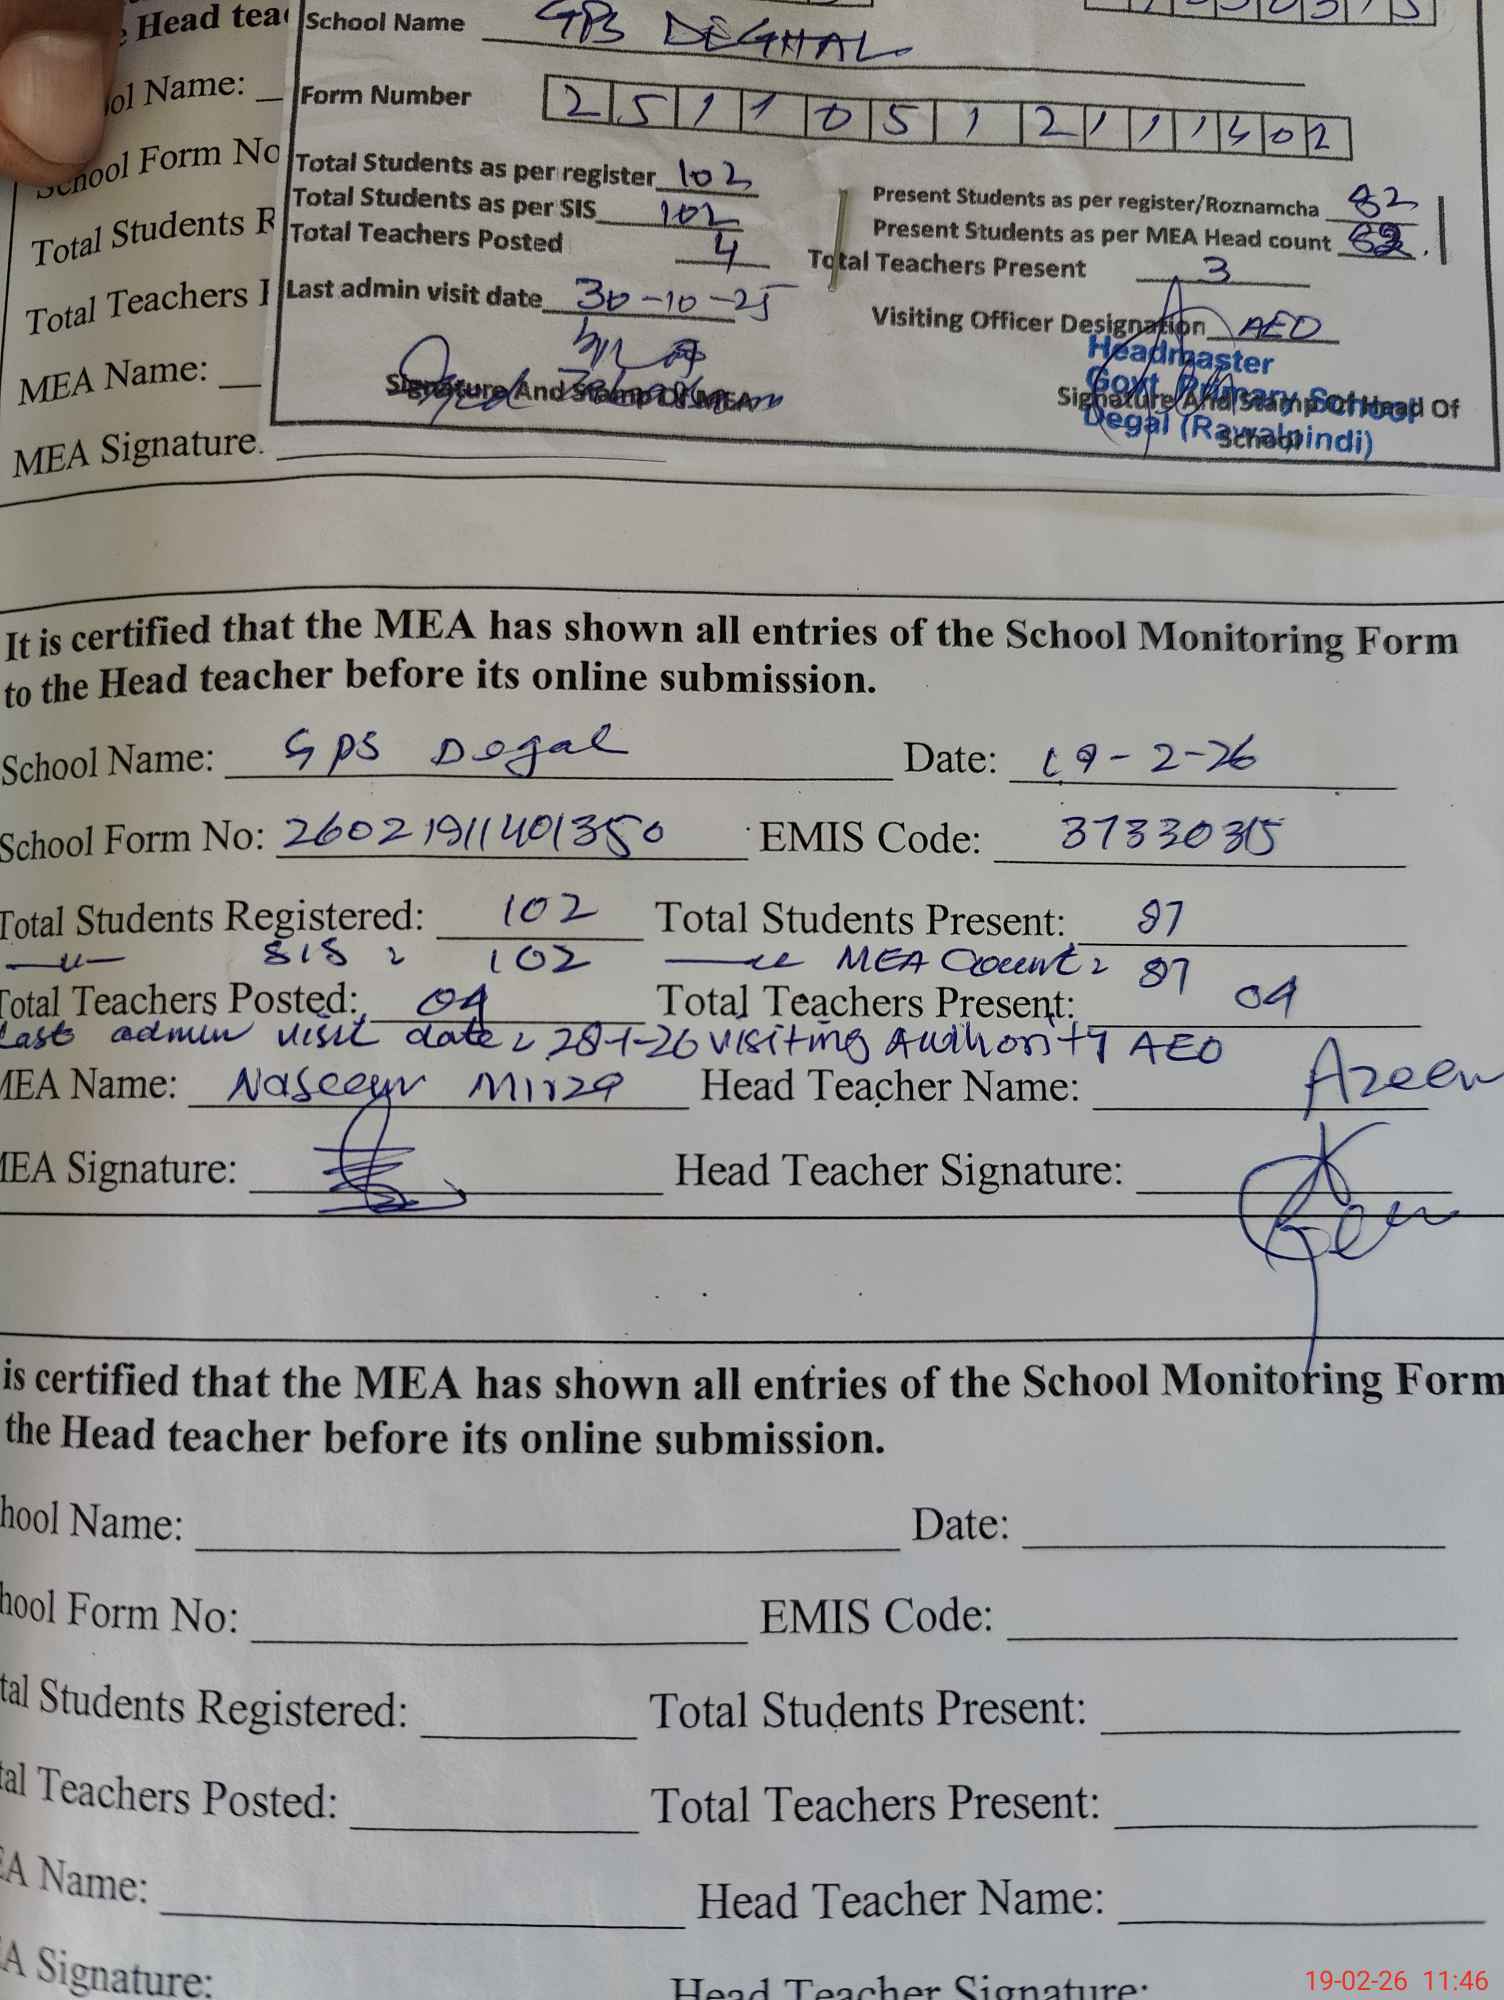 Head tea
School Name GPS DEGHAL
ol Name:
Form Number 2 5 1 1 0 5 1 2 1 1 1 4 0 2
School Form No
Total Students as per register 102
Present Students as per register/Roznamcha 82
Total Students as per SIS 102
Present Students as per MEA Head count
Total Students R
Total Teachers Posted 4
Total Teachers Present 3
Total Teachers
Last admin visit date 30-10-25
Visiting Officer Designation AEO
Headmaster
Govt. Primary School
Degal (Rawalpindi)
MEA Name:
Signature And Stamp Of MEA
Signature And Stamp Of Head Of
School
MEA Signature.
It is certified that the MEA has shown all entries of the School Monitoring Form
to the Head teacher before its online submission.
School Name: GPS Degal Date: 19-2-26
School Form No: 26021911401350 EMIS Code: 37330315
Total Students Registered: 102 Total Students Present: 87
SIS 102 MEA Count 87
Total Teachers Posted: 04 Total Teachers Present: 04
Last admin visit date 28-1-26 visiting Authority AEO
MEA Name: Naseem Mirza Head Teacher Name: Azeem
MEA Signature: Head Teacher Signature:
is certified that the MEA has shown all entries of the School Monitoring Form
the Head teacher before its online submission.
hool Name: Date:
hool Form No: EMIS Code:
tal Students Registered: Total Students Present:
tal Teachers Posted: Total Teachers Present:
EA Name: Head Teacher Name:
A Signature: Head Teacher Signature:
19-02-26 11:46